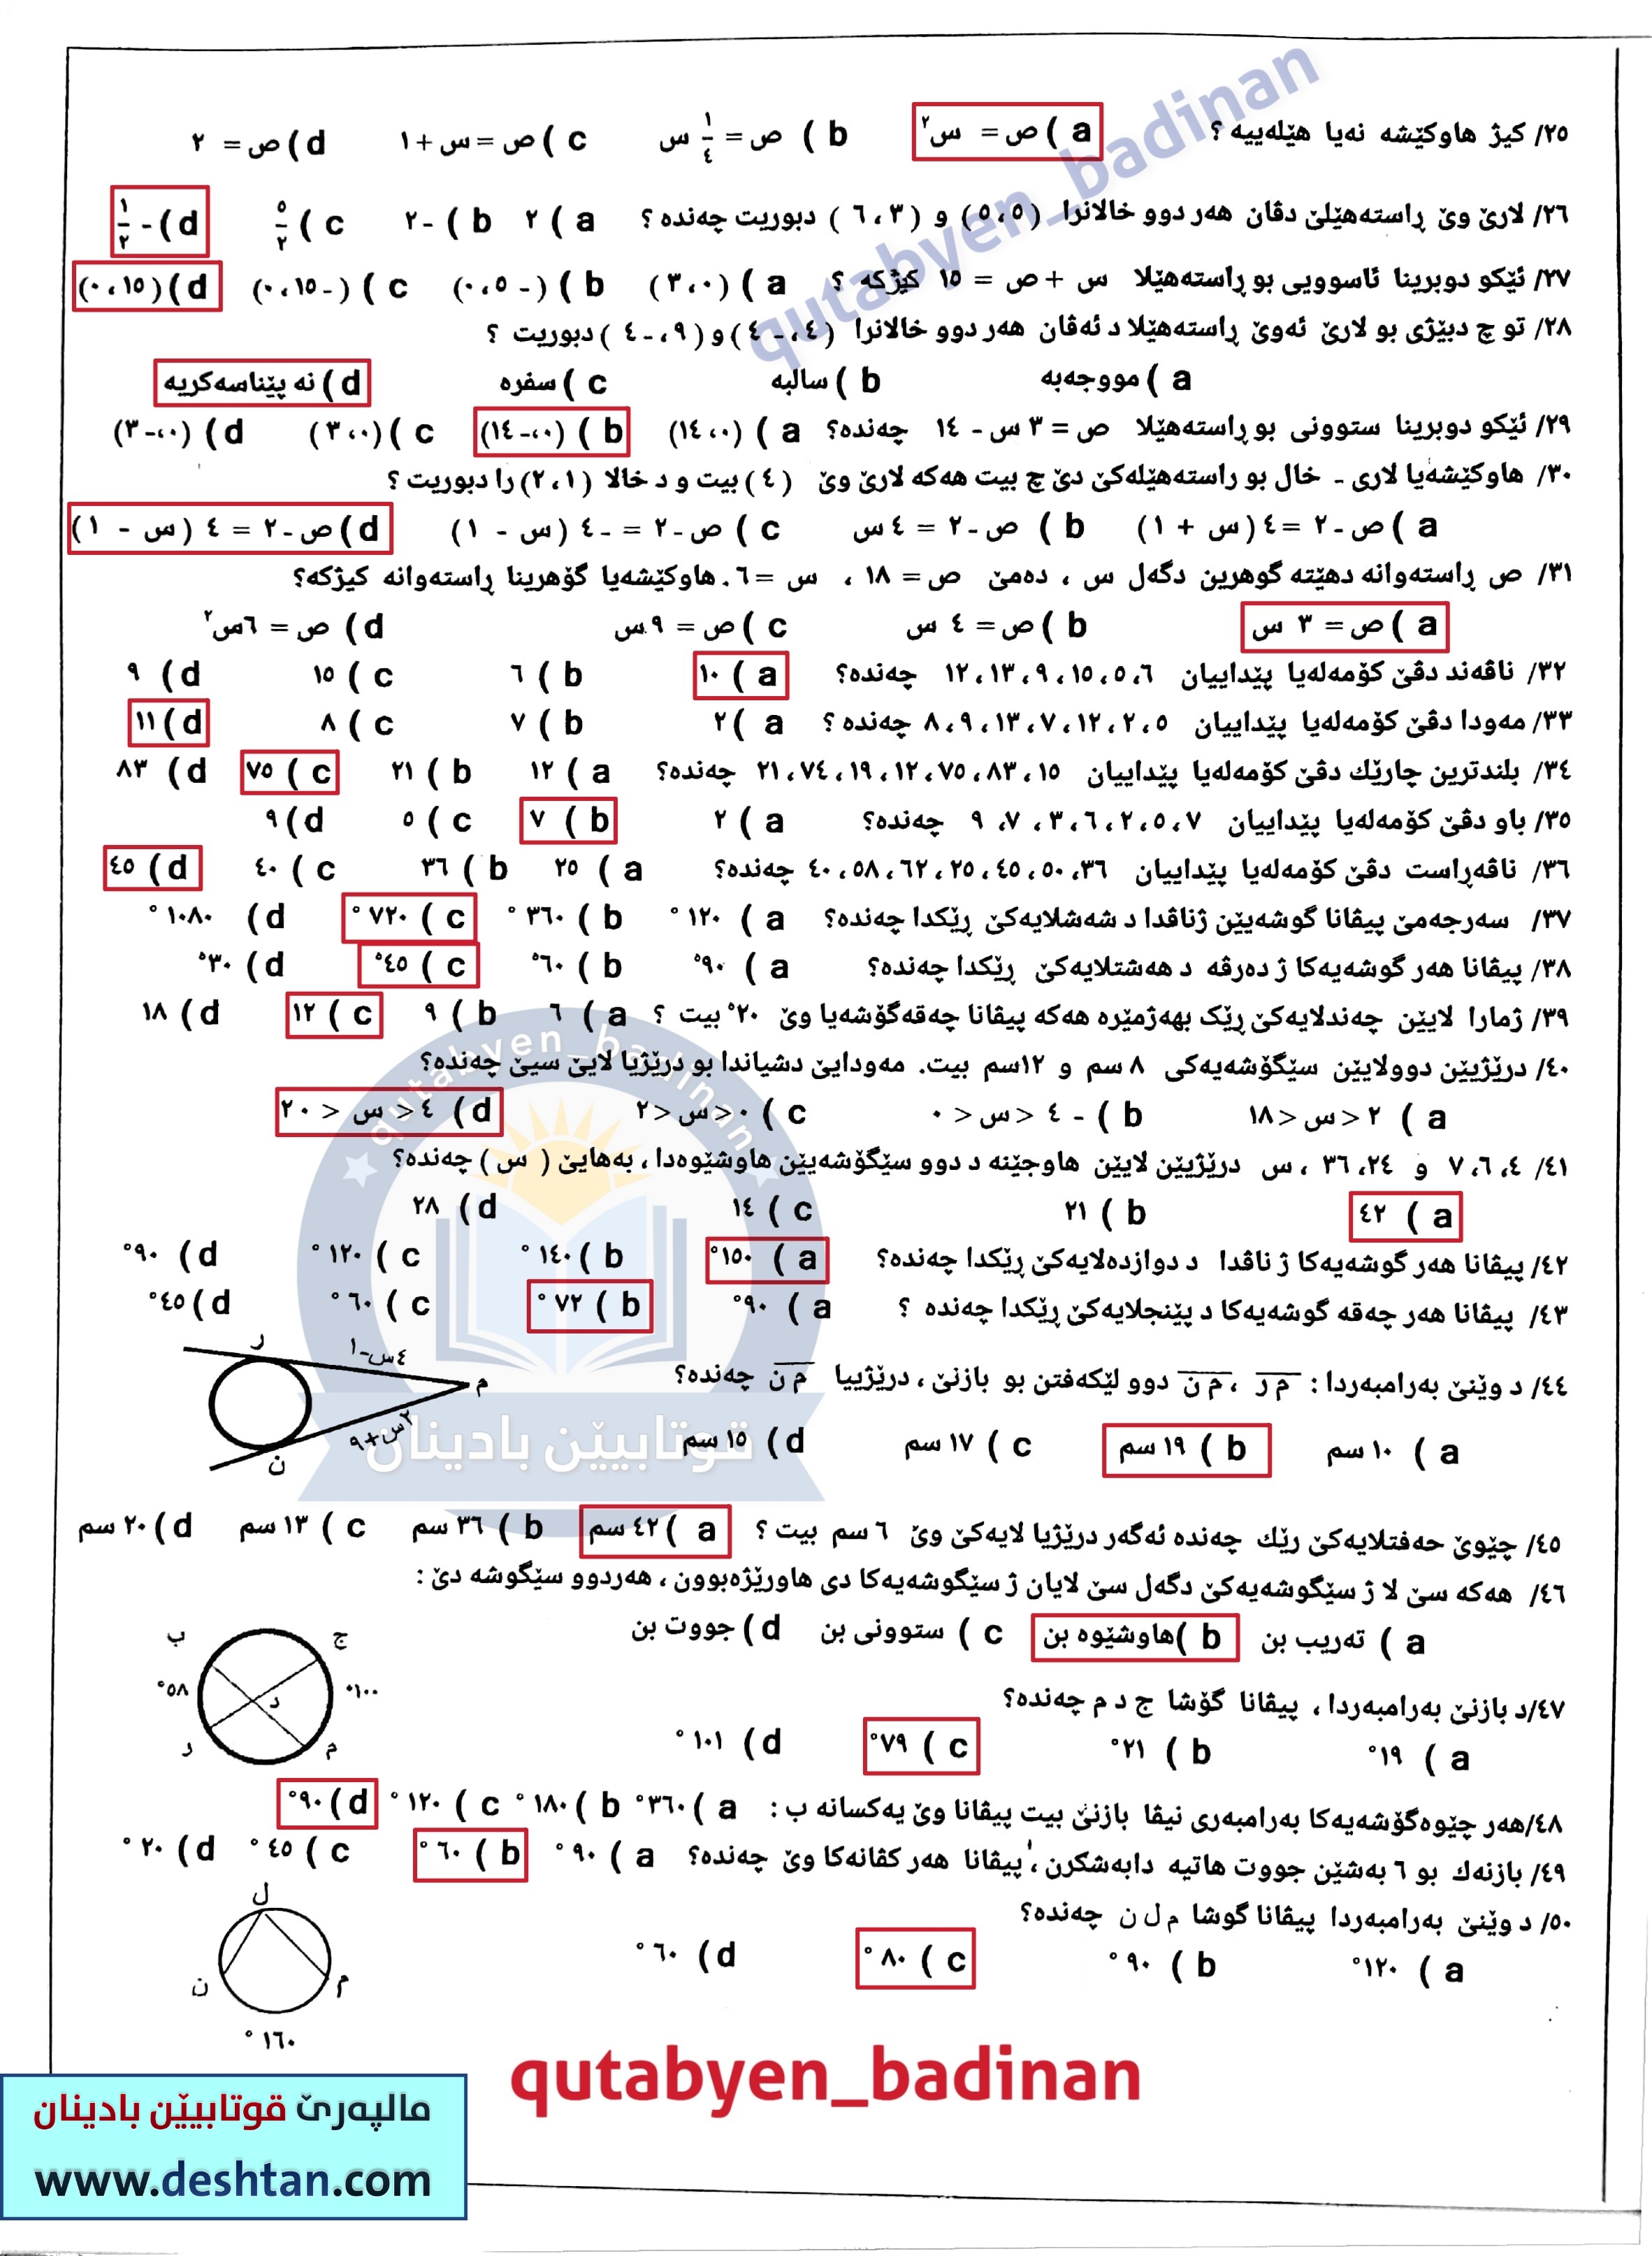 ٢٥/ كيژ هاوكێشه نه‌یا هێله‌ییه ؟ a ) ص = س٢ b ) ص = ١/٤ س c ) ص = س + ١ d ) ص = ٢
٢٦/ لارێ وێ ڕاسته‌هێلێ دڤان هه‌ر دوو خالانرا (٥،٥) و (٣،٦) دبوریت چه‌نده ؟ a ) ٢ b ) -٢ c ) ٥/٢ d ) - ١/٢
٢٧/ ئێكو دوبرینا ئاسوویی بو ڕاسته‌هێلا س + ص = ١٥ كیژكه ؟ a ) (٣،٠) b ) (-٠،٥) c ) (-٠،١٥) d ) (٠،١٥)
٢٨/ تو چ دبێژی بو لارێ ئه‌وێ ڕاسته‌هێلا د ئه‌ڤان هه‌ر دوو خالانرا (٤،-٤) و (٩،-٤) دبوریت ؟
a ) مووجه‌به b ) سالبه c ) سفره d ) نه پێناسه‌كریه
٢٩/ ئێكو دوبرینا ستوونی بو ڕاسته‌هێلا ص = ٣ س - ١٤ چه‌نده؟ a ) (١٤،٠) b ) (٠،-١٤) c ) (٣،٠) d ) (٠،-٣)
٣٠/ هاوكێشه‌یا لاری - خال بو راسته‌هێله‌كێ دێ چ بیت هه‌كه لارێ وێ (٤) بیت و د خالا (٢،١) را دبوریت ؟
a ) ص - ٢ = ٤ (س + ١) b ) ص - ٢ = ٤ س c ) ص - ٢ = - ٤ (س - ١) d ) ص - ٢ = ٤ (س - ١)
٣١/ ص ڕاسته‌وانه دهێته گوهرین دگه‌ل س ، ده‌مێ ص = ١٨ ، س = ٦ . هاوكێشه‌یا گۆهرینا ڕاسته‌وانه كیژكه؟
a ) ص = ٣ س b ) ص = ٤ س c ) ص = ٩ س d ) ص = ٦س٢
٣٢/ ناڤه‌ند دڤێ كۆمه‌له‌یا پێداییان ٦،٥،١٥،٩،١٣،١٢ چه‌نده؟ a ) ١٠ b ) ٦ c ) ١٥ d ) ٩
٣٣/ مه‌ودا دڤێ كۆمه‌له‌یا پێداییان ٥،٢،١٢،٧،١٣،٩،٨ چه‌نده ؟ a ) ٢ b ) ٧ c ) ٨ d ) ١١
٣٤/ بلندترین چارێك دڤێ كۆمه‌له‌یا پێداییان ١٥،٨٣،٧٥،١٢،١٩،٧٤،٢١ چه‌نده؟ a ) ١٢ b ) ٢١ c ) ٧٥ d ) ٨٣
٣٥/ باو دڤێ كۆمه‌له‌یا پێداییان ٧،٥،٢،٦،٣،٧،٩ چه‌نده؟ a ) ٢ b ) ٧ c ) ٥ d ) ٩
٣٦/ ناڤه‌ڕاست دڤێ كۆمه‌له‌یا پێداییان ٣٦،٥٠،٤٥،٢٥،٦٢،٥٨،٤٠ چه‌نده؟ a ) ٢٥ b ) ٣٦ c ) ٤٠ d ) ٤٥
٣٧/ سه‌رجه‌مێ پیڤانا گوشه‌یێن ژناڤدا د شه‌شلایه‌كێ ڕێكدا چه‌نده؟ a ) ١٢٠° b ) ٣٦٠° c ) ٧٢٠° d ) ١٠٨٠°
٣٨/ پیڤانا هه‌ر گوشه‌یه‌كا ژ ده‌رڤه د هه‌شتلایه‌كێ ڕێكدا چه‌نده؟ a ) ٩٠° b ) ٦٠° c ) ٤٥° d ) ٣٠°
٣٩/ ژمارا لایێن چه‌ندلایه‌كێ ڕێک بهه‌ژمێره هه‌كه پیڤانا چه‌قه‌گۆشه‌یا وێ ٢٠° بیت ؟ a ) ٦ b ) ٩ c ) ١٢ d ) ١٨
٤٠/ درێژیێن دوولایێن سێگۆشه‌یه‌كی ٨ سم و ١٢سم بیت. مه‌ودایێ دشیاندا بو درێژیا لایێ سیێ چه‌نده؟
a ) ٢ < س < ١٨ b ) - ٤ < س < ٠ c ) ٠ < س < ٢ d ) ٤ < س < ٢٠
٤١/ ٤،٦،٧ و ٢٤،٣٦، س درێژیێن لایێن هاوجێنه د دوو سێگۆشه‌یێن هاوشێوه‌دا ، به‌هایێ ( س ) چه‌نده؟
a ) ٤٢ b ) ٢١ c ) ١٤ d ) ٢٨
٤٢/ پیڤانا هه‌ر گوشه‌یه‌كا ژ ناڤدا د دوازده‌لایه‌كێ ڕێكدا چه‌نده؟ a ) ١٥٠° b ) ١٤٠° c ) ١٢٠° d ) ٩٠°
٤٣/ پیڤانا هه‌ر چه‌قه گوشه‌یه‌كا د پێنجلایه‌كێ ڕێكدا چه‌نده ؟ a ) ٩٠° b ) ٧٢° c ) ٦٠° d ) ٤٥°
ر
٤س-١
م
٢س+٩
ن
٤٤/ د وێنێ به‌رامبه‌ردا : م ر ، م ن دوو لێكه‌فتن بو بازنێ ، درێژییا م ن چه‌نده؟
a ) ١٠ سم b ) ١٩ سم c ) ١٧ سم d ) ١٥ سم
٤٥/ چێوێ حه‌فتلایه‌كێ رێك چه‌نده ئه‌گه‌ر درێژیا لایه‌كێ وێ ٦ سم بیت ؟ a ) ٤٢ سم b ) ٣٦ سم c ) ١٣ سم d ) ٢٠ سم
٤٦/ هه‌كه سێ لا ژ سێگوشه‌یه‌كێ دگه‌ل سێ لایان ژ سێگوشه‌یه‌كا دی هاورێژه‌بوون ، هه‌ردوو سێگوشه دێ :
a ) ته‌ریب بن b ) هاوشێوه بن c ) ستوونی بن d ) جووت بن
ج
ب
١٠٠°
٥٨°
د
ر
م
٤٧/د بازنێ به‌رامبه‌ردا ، پیڤانا گۆشا ج د م چه‌نده؟
a ) ١٩° b ) ٢١° c ) ٧٩° d ) ١٠١°
٤٨/هه‌ر چێوه‌گۆشه‌یه‌كا به‌رامبه‌ری نیڤا بازنێ بیت پیڤانا وێ یه‌كسانه ب : a ) ٣٦٠° b ) ١٨٠° c ) ١٢٠° d ) ٩٠°
٤٩/ بازنه‌ك بو ٦ به‌شێن جووت هاتیه دابه‌شكرن ، پیڤانا هه‌ر كڤانه‌كا وێ چه‌نده؟ a ) ٩٠° b ) ٦٠° c ) ٤٥° d ) ٢٠°
٥٠/ د وێنێ به‌رامبه‌ردا پیڤانا گوشا م ل ن چه‌نده؟
a ) ١٢٠° b ) ٩٠° c ) ٨٠° d ) ٦٠°
ل
ن
م
١٦٠°
qutabyen_badinan
qutabyen_badinan
قوتابیێن بادینان
qutabyen_badinan
مالپه‌رێ قوتابیێن بادینان
www.deshtan.com